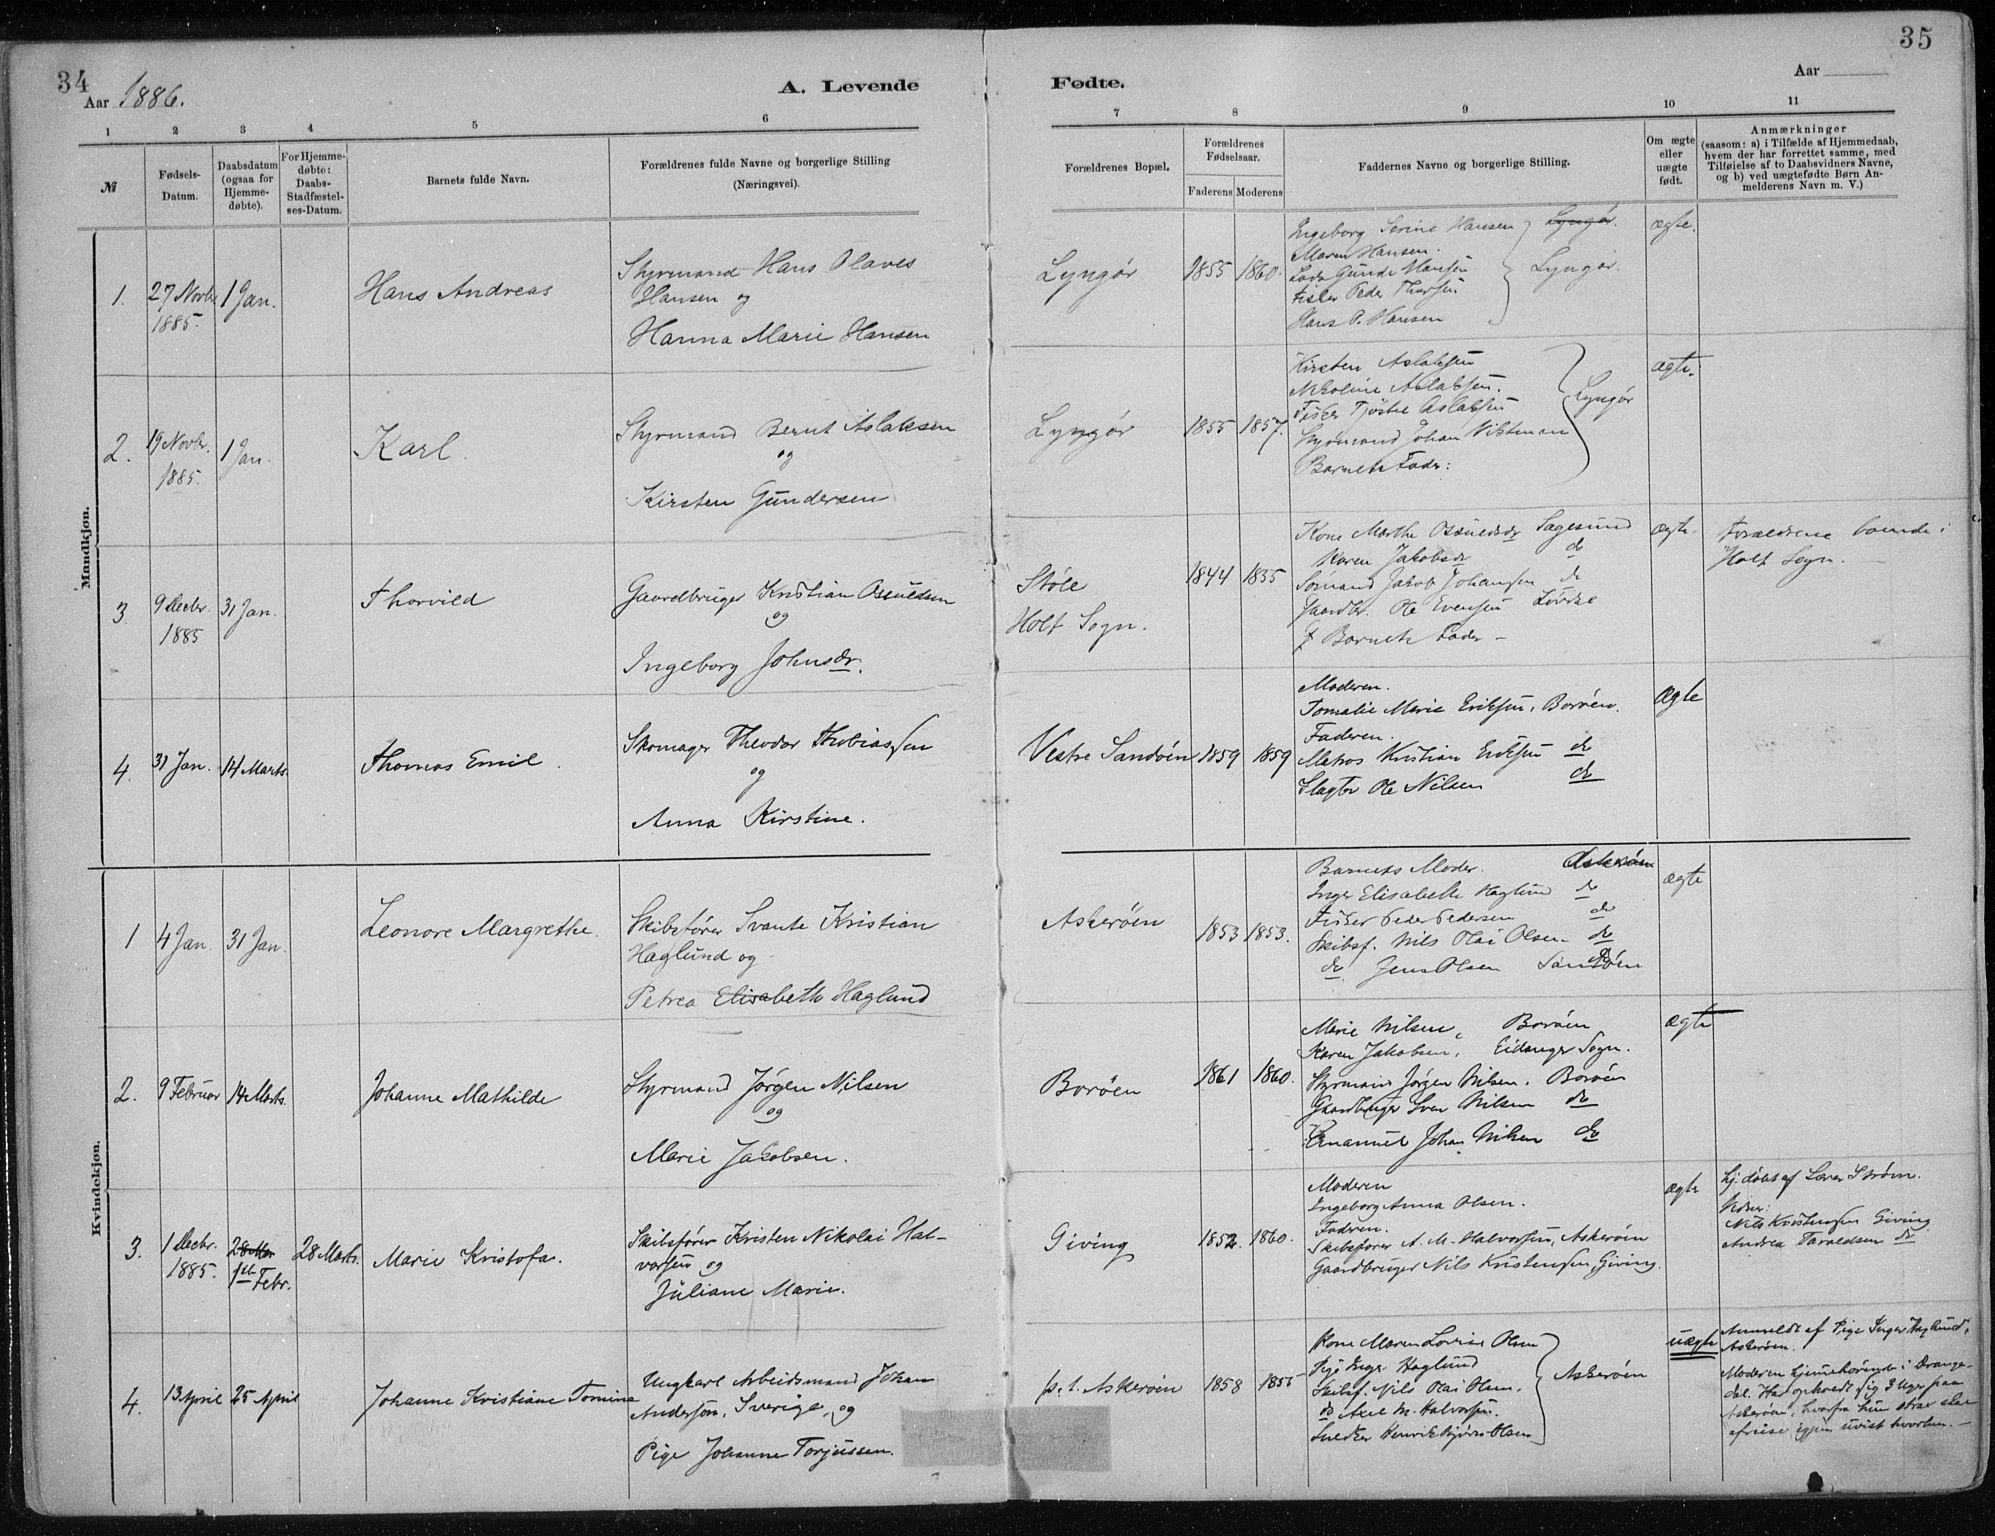 34
Aar 1886.
A. Levende
1 2 3 4 5 6
№
Fødsels-
Datum.
Daabsdatum
(ogsaa for
Hjemme-
døbte).
For Hjemme-
døbte:
Daabs-
Stadfæstel-
ses-Datum.
Barnets fulde Navn.
Forældrenes fulde Navne og borgerlige Stilling
(Næringsvei).
Mandkjøn.
1.
27 Novbr
1885.
1 Jan.
Hans Andreas
Styrmand Hans Olaves
Hansen og
Hanna Marie Hansen
2.
19 Novbr.
1885.
1 Jan.
Karl.
Styrmand Bernt Aslaksen
og
Kirsten Gundersen
3
9 Decbr.
1885
31 Jan.
Thorvild
Gaardbruger Kristian Osuldsen
og
Ingeborg Johnsdr.
4.
31 Jan.
14 Marts.
Thomas Emil.
Skomager Theodor Thobiassen
og
Anna Kirstine.
Kvindekjøn.
1
4 Jan.
31 Jan.
Leonore Margrethe.
Skibsfører Svante Kristian
Haglund og
Petrea Elisabeth Haglund
2.
9 Februar
14 Marts.
Johanne Mathilde
Styrmand Jørgen Nilsen
og
Marie Jakobsen.
3.
1 Decbr.
1885.
28 Mar
1st Febr.
28 Marts.
Marie Kristofa.
Skibsfører Kristen Nikolai Hal-
vorsen og
Juliane Marie.
4.
13 April
25 April
Johanne Kristiane Tomine
Ungkarl Arbeidsmand Johan
Anderson, Sverige, og
Pige Johanne Torjussen.
35
Fødte.
Aar
7 8 9 10 11
Forældrenes Bopæl.
Forældrenes
Fødselsaar.
Faderens Moderens
Faddernes Navne og borgerlige Stilling.
Om ægte
eller
uægte
født.
Anmærkninger
(saasom: a) i Tilfælde af Hjemmedaab,
hvem der har forrettet samme, med
Tilføielse af to Daabsvidners Navne,
og b) ved uægtefødte Børn An-
melderens Navn m. V.)
Lyngør
1855 1860.
Ingeborg Serine Hansen Lyngør.
Maren Hansen.
Gunde Hansen Lyngør.
Fisker Peder Thorsen
Hans P. Hansen
ægte.
Lyngør
1855 1857.
Kirsten Aslaksen
Nikoline Aslaksen.
Fisker Aslaksen Lyngør
Styrmand Johan
Barnets Fader.
ægte.
Støle
Holt Sogn.
1844 1855
Kone Marthe Osuldsdr Sagesund
Karen Jakobsdr do
Sømand Jakob Johansen do
Gaardbr. Ole Evensen
Barnets Fader –
ægte.
Forældrene boende i
Holt Sogn. –
Vestre Sandøen
1859 1859
Moderen.
Tomalie Marie Eriksen, Borøen.
Faderen.
Matros Kristian Eriksen do
Slagter Ole Nilsen do
Ægte
Askerøen
1853 1853.
Barnets Moder. Askerøen
Inger Elisabeth Haglund do
Fisker Peder Pedersen do
Skibsf. Nils Olai Olsen do
do Jens Olsen Sandøen
ægte
Borøen
1861 1860.
Marie Nilsen, Borøen
Karen Jakobsen, Eidanger Sogn.
Styrmand Jørgen Nilsen, Borøen
Gaardbruger Sven Nilsen do
Emanuel Johan Nilsen do
ægte
Giving
1852. 1860.
Moderen
Ingeborg Anna Olsen.
Faderen.
Skibsfører A. M. Halvorsen, Askerøen
Gaardbruger Nils Kristensen, Giving.
ægte
Hj. døbt af Lærer Strøm.
Vidner:
Nils Kristensen Giving
Andrea Taraldsen do
p. t. Askerøen
1858 1855
Kone Maren Lovise Olsen
Pige Inger Haglund
Skibsf. Nils Olai Olsen. Askerøen
do Axel M. Halvorsen.
Snedker Henrik Olsen
uægte
Anmeldt af Pige Inger Haglund,
Askerøen.
Moderen hjemmehørende i Drange-
dal. Har opholdt sig 3 Uger paa
Askerøen, hvorfra hun strax skal
afreise igjen uvist hvorhen. –